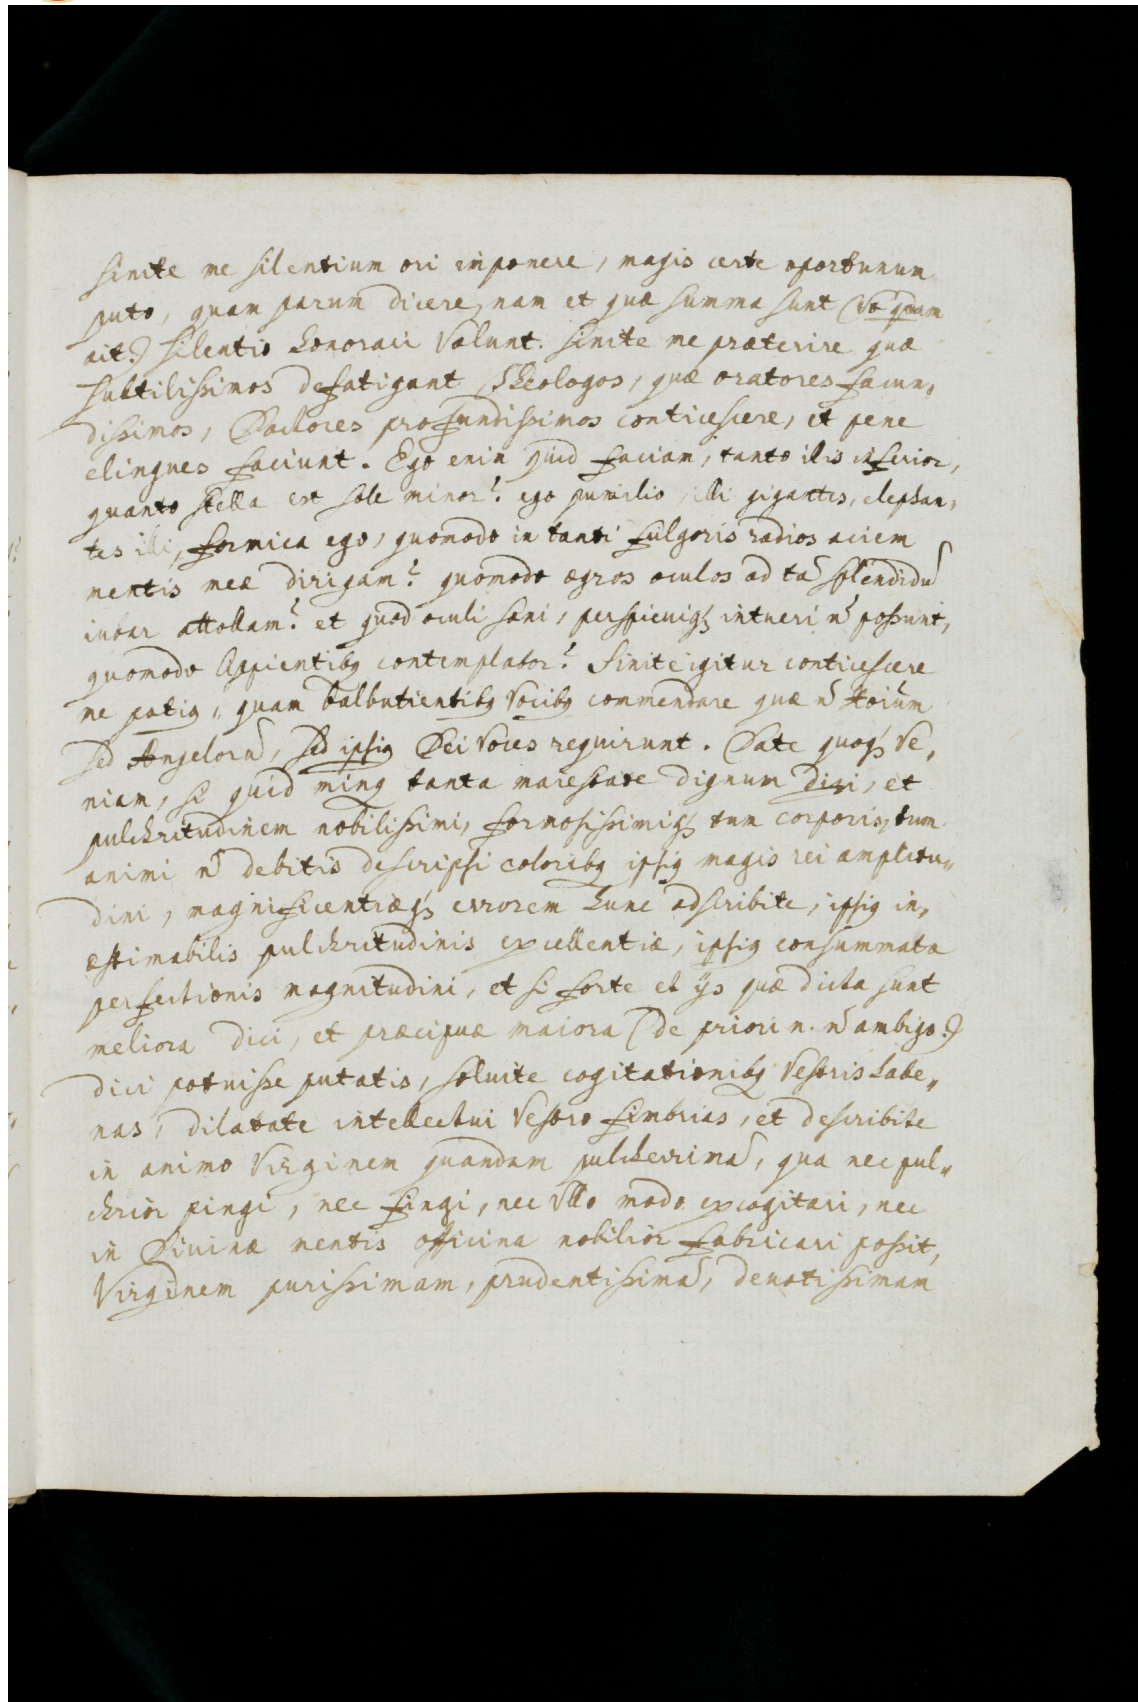 sinite me silentium ori imponere, magis certe oportunum
puto, quam parum dicere, nam et quæ summa sunt (ut quidam
ait.) silentio honorari volunt. sinite me præterire quæ
subtilissimos defatigant Theologos, quæ oratores facun„
dissimos, Doctores profundissimos conticescere, et pene
elingues faciunt. Ego enim quid faciam, tanto illis inferior,
quanto stella est sole minor? ego pumilio, illi gigantes, elephan„
tes illi, formica ego, quomodo in tanti fulgoris radios aciem
mentis meæ dirigam? quomodo ægros oculos ad tā splendidū
iubar attollam? et quod oculi sani, perspicuiq́ꝫ intueri n̄ possunt,
quomodo lippientibꝰ contemplabor? Sinite igitur conticescere
me potiꝰ, quam balbutientibꝰ vocibꝰ commendare quæ n̄ hoīum
sed Angelorū, sed ipsiꝰ Dei voces requirunt. Date quoq́ꝫ ve„
niam, si quid minꝰ tanta maiestate dignum dixi, et
pulchritudinem nobilissimi, formosissimiq́ꝫ tum corporis, tum
animi n̄ debitis descripsi coloribꝰ ipsiꝰ magis rei amplitu„
dini, magnificentiæq́ꝫ errorem hunc adscribite, ipsiꝰ in„
æstimabilis pulchritudinis excellentiæ, ipsiꝰ consummatæ
perfectionis magnitudini, et si forte et ijs quæ dicta sunt
meliora dici, et præcipuæ maiora (de priori n. n̄ ambigo.)
dici potuisse putatis, soluite cogitationibꝰ vestris habe„
nas, dilatate intellectui vestro fimbrias, et describite
in animo Virginem quandam pulcherrimā, qua nec pul„
chrior pingi, nec fingi, nec ullo modo excogitari, nec
in Diuinæ mentis officina nobilior fabricari possit,
Virginem purissimam, prudentissimā, deuotissimam